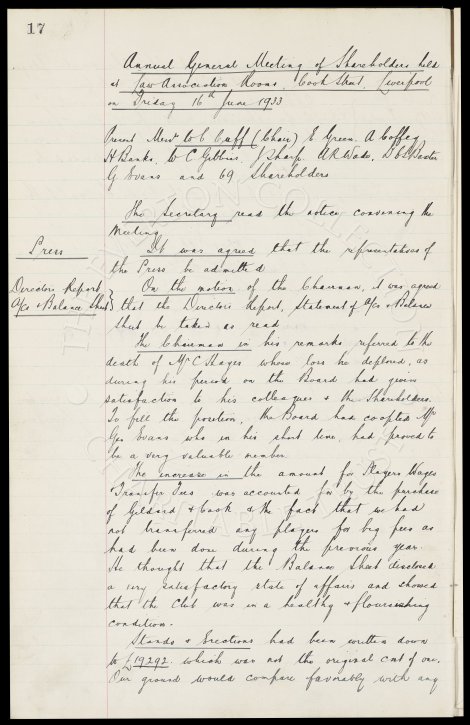 17
Annual General Meeting of Shareholders held
at Law Association Rooms, Cook Street, Liverpool
on Friday 16th June 1933
Present Messrs W C Cuff (Chair) E. Green. A Coffey
H Banks, W C Gibbins, J Sharp. A R Wade. D C L Baxter
G Evans and 69 Shareholders
The Secretary read the notice convening the
Meeting.
Press
It was agreed that the representatives of
the Press be admitted
Directors Report
A/cs & Balance Sheet
On the motion of the Chairman, it was agreed
that the Directors Report, Statement of A/cs & Balance
Sheet be taken as read.
The Chairman in his remarks referred to the
death of Mr C. whose loss he deplored, as
during his period on the Board had given
satisfaction to his colleagues & the Shareholders.
To fill the position, the Board had coopted Mr
Geo Evans who in his short time had proved to
be a very valuable member.
The increase in the amount for Players Wages
& Transfer Fees was accounted for by the purchase
of Geldard & Cook & the fact that we had
not transferred any players for big fees as
had been done during the previous year.
He thought that the Balance Sheet disclosed
a very satisfactory state of affairs and showed
that the Club was in a healthy & flourishing
condition.
Stands & Erections had been written down
to £19292. which was not the original cost of one.
Our ground would compare favorably with any